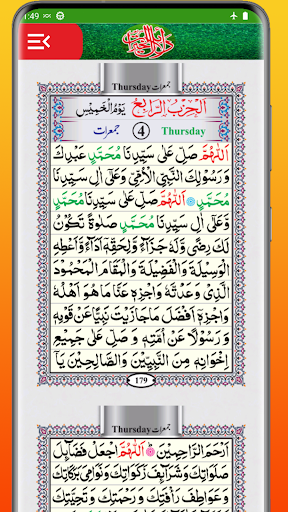 1:49
دلائل الخیرات
Thursday جمعرات
اَلْحِزْبُ الرَّابِعُ يَوْمُ الْخَمِيْسِ
4 Thursday جمعرات
اَللّٰهُمَّ صَلِّ عَلٰى سَيِّدِنَا مُحَمَّدٍ عَبْدِكَ
وَرَسُوْلِكَ النَّبِيِّ الْاُمِّيِّ وَعَلٰٓى اٰلِ سَيِّدِنَا
مُحَمَّدٍ ۞ اَللّٰهُمَّ صَلِّ عَلٰى سَيِّدِنَا مُحَمَّدٍ
وَّعَلٰٓى اٰلِ سَيِّدِنَا مُحَمَّدٍ صَلٰوةً تَكُوْنُ
لَكَ رِضًى وَّلَهٗ جَزَآءً وَّلِحَقِّهٖ اَدَآءً وَّاَعْطِهِ
الْوَسِيْلَةَ وَالْفَضِيْلَةَ وَالْمَقَامَ الْمَحْمُوْدَ
الَّذِيْ وَعَدْتَّهٗ وَاجْزِهٖ عَنَّا مَا هُوَ اَهْلُهٗ
وَاجْزِهٖٓ اَفْضَلَ مَا جَازَيْتَ نَبِيًّا عَنْ قَوْمِهٖ
وَرَسُوْلًا عَنْ اُمَّتِهٖ وَصَلِّ عَلٰى جَمِيْعِ
اِخْوَانِهٖ مِنَ النَّبِيِّيْنَ وَالصَّالِحِيْنَ يَآ
179
Thursday جمعرات
اَرْحَمَ الرَّاحِمِيْنَ ۞ اَللّٰهُمَّ اجْعَلْ فَضَآئِلَ
صَلَوَاتِكَ وَشَرَآئِفَ زَكَوَاتِكَ وَنَوَامِيَ بَرَكَاتِكَ
وَعَوَاطِفَ رَاْفَتِكَ وَرَحْمَتِكَ وَتَحِيَّتِكَ